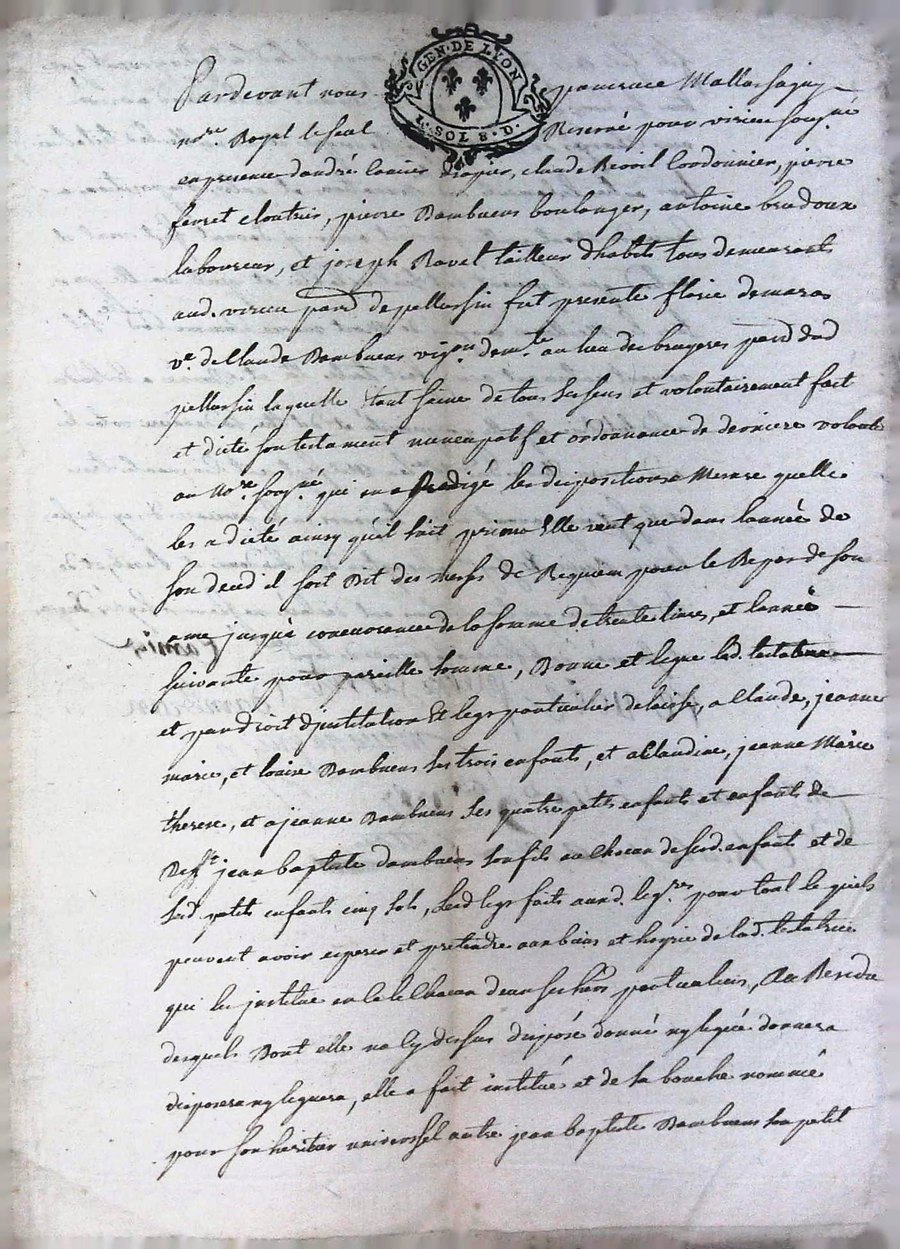 GEN. DE LYON
1. SOL 8. D.
Pardevant nous pancrace Mallassagny
no.re Royal le seul Reservé pour virieu soug.né
en presence d'andré Drapier, claude Revoil Cordonnier, pierre
ferret cloutrier, pierre Dambuens boulanger, antoine
laboureur, et joseph Ravel tailleur d'habits tous demeurants
aud. virieu par.d de pellussin fut presente florie demaras
v.e de Claude Dambuens vig.on dem.te au lieu des bruyeres par.d dud
pellussin, laquelle etant saine de tous ses sens et volontairement fait
et dicté son testament nuncupatif et ordonnance de derniere volonté
au No.re soug.né qui en a Redigé les dispositions a Mesure quelle
les a dicté ainsy qu'il suit primo Elle veut que dans lannée de
son deced il soit Dit des messes de Requiem pour le Repos de son
ame jusqu'a concurrance de la somme de trente livres, et lannée
suivante pour pareille somme, Donne et legue lad. testatrice
et par droit d'institution et legs particulier delaisse, a Claude, jeanne
marie, et Dambuens ses trois enfants, et a Claudine, jeanne Marie
therese, et a jeanne Dambuens ses quatre petits enfants et enfants de
Deff.t jean baptiste dambuens son fils au Chacun de sesd. enfants et de
sesd. petits enfants cinq sols, lesd legs faits auxd. leg.res pour tout le quils
peuvent avoir esperer et pretendre aux biens et hoyrie de lad. testatrice
qui les institue en ce le Chacun deux ses heirs particuliers, Au Residu
desquels Dont elle na cy dessus disposé donné ny legué donnera
disposera ny leguera, elle a fait institué et de sa bouche nommé
pour son heritier universsel autre jean baptiste Dambuens son petit